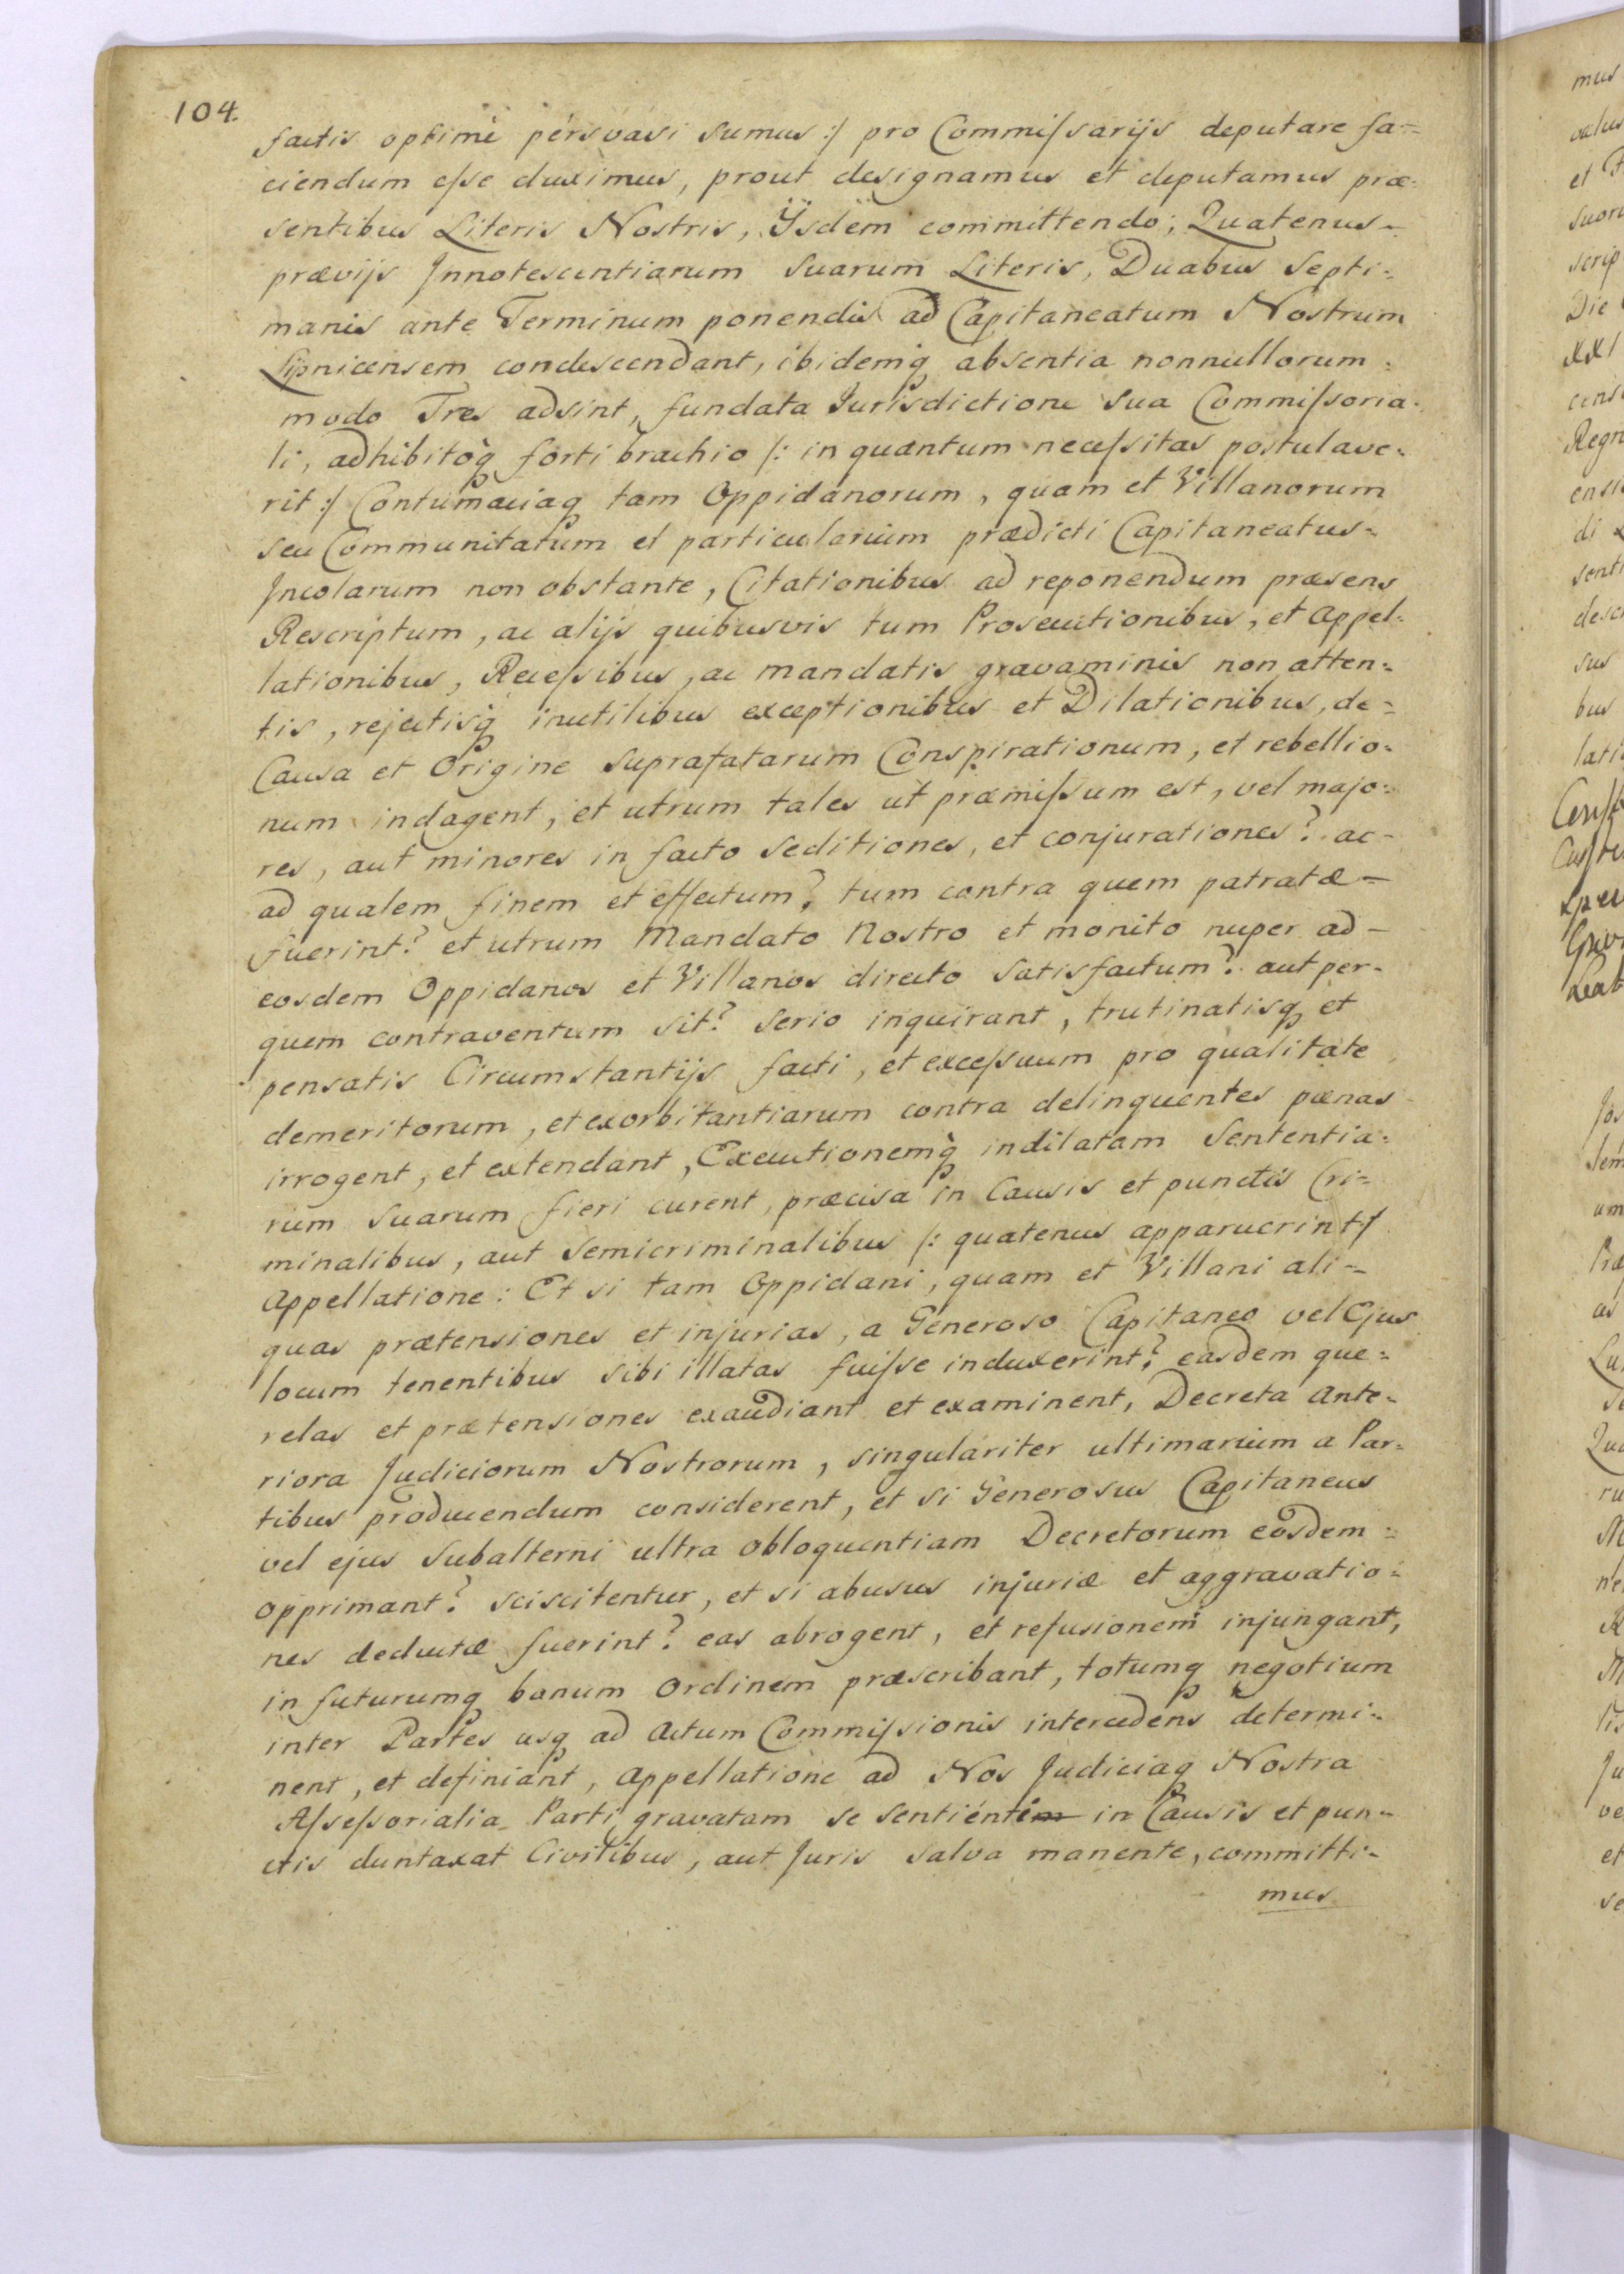 104.
factis optimè pérsvasi sumus :/ pro Commiſsarijs deputare fa=
ciendum eſse duximus, prout designamus et deputamus præ=
sentibus Literis Nostris, Ÿsdëm committendo; Quatenus-
prævijs Innotescentiarum suarum Literis, Duabus Septi=
manis ante Terminum ponendis ad Capitaneatum Nostrum
Lipnicensem condescendant, ibidemq absentia nonnullorum=
modo Tres adsint, fundata Jurisdictione sua Commiſsoria=
li, adhibitoq forti brachio /: in quantum neceſsitas postulave=
rit :/ Contumaciaq tam Oppidanorum, quam et Villanorum
seu Communitatum et particularium prædicti Capitaneatus=
Incolarum non obstante, Citationibus ad reponendum præsens
Rescriptum, ac alijs quibusvis tum Prosecutionibus, et Appel=
lationibus, Receſsibus, ac mandatis gravaminis non atten=
tis, rejectisq inutilibus exceptionibus et Dilationibus, de=
Causa et Origine suprafatarum Conspirationum, et rebellio=
num indagent, et utrum tales ut præmiſsum est, vel majo=
res, aut minores in facto seditiones, et conjurationes? ac-
ad qualem finem et effectum? tum contra quem patratæ-
fuerint? et utrum Mandato Nostro et monito nuper ad-
eosdem Oppidanos et Villanos directo satisfactum? aut per-
quem contraventum sit? serio inquirant, trutinatisq et
pensatis Circumstantijs facti, et exceſsuum pro qualitate
demeritorum, et exorbitantiarum contra delinquentes pænas
irrogent, et extendant, Executionemq indilatam Sententia=
rum suarum fieri curent, præcisa in Causis et punctis Cri=
minalibus, aut Semicriminalibus /: quatenus apparuerint :/
Appellatione: Et si tam Oppidani, quam et Villani ali=
quas prætensiones et injurias, a Generoso Capitaneo vel Ejus
locum tenentibus sibi illatas fuiſse induxerint? easdem que=
relas et prætensiones exaudiant et examinent, Decreta Ante=
riora Judiciorum Nostrorum, singulariter ultimarium a Par=
tibus producendum considerent, et si Generosus Capitaneus
vel ejus Subalterni ultra obloquentiam Decretorum eosdem=
opprimant? sciscitentur, et si abusus injuriæ et aggravatio=
nes deductæ fuerint? eas abrogent, et refusionem injungant,
in futurumq bonum Ordinem præscribant, totumq negotium
inter Partes usq ad Actum Commiſsionis intercedens determi=
nent, et definiant, Appellatione ad Nos Judiciaq Nostra
Aſseſsorialia Parti gravatam se sentienti in Causis et pun=
ctis duntaxat Civilibus, aut Juris salva manente, committi=
mus